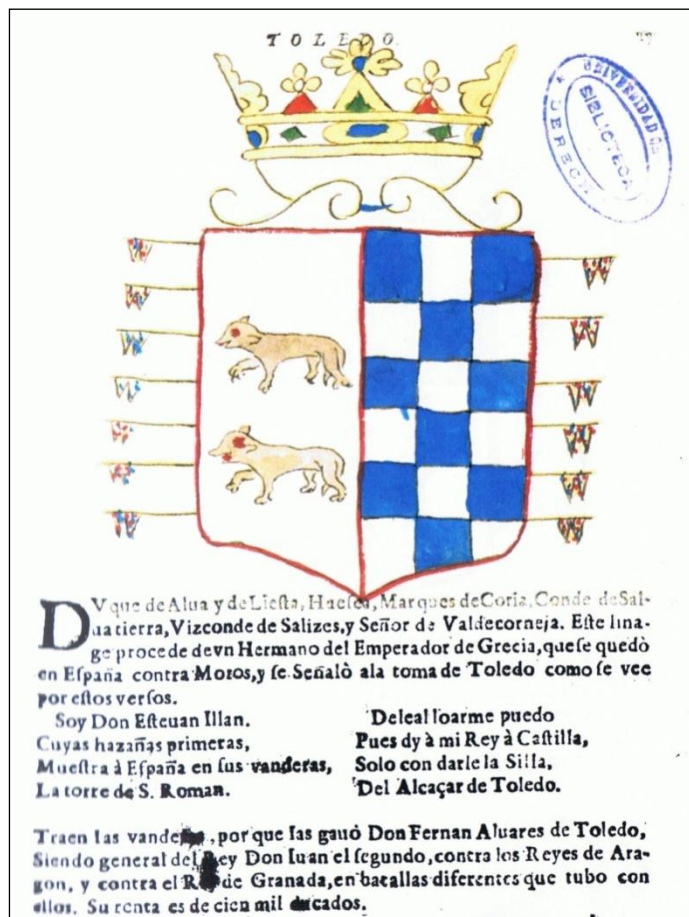 TOLEDO.
UNIVERSIDAD DE
DERECH
BIBLIOTECA
DVque de Alua y de Lieſta, Hueſca, Marques de Coria, Conde de Sal-
uatierra, Vizconde de Salizes, y Señor de Valdecorneja. Eſte lina-
ge procede devn Hermano del Emperador de Grecia, queſe quedò
en Eſpaña contra Moros, y ſe Señalò ala toma de Toledo como ſe vee
por eſtos verſos.
Soy Don Eſteuan Illan.
Cuyas hazañas primeras,
Mueſtra à Eſpaña en ſus vanderas,
La torre de S. Roman.
Deleal loarme puedo
Pues dy à mi Rey à Caſtilla,
Solo con darle la Silla,
Del Alcaçar de Toledo.
Traen las vanderas, por que las gauó Don Fernan Aluares de Toledo,
Siendo general del Rey Don Iuan el ſegundo, contra los Reyes de Ara-
gon, y contra el Rey de Granada, en batallas diferentes que tubo con
ellos. Su renta es de cien mil ducados.